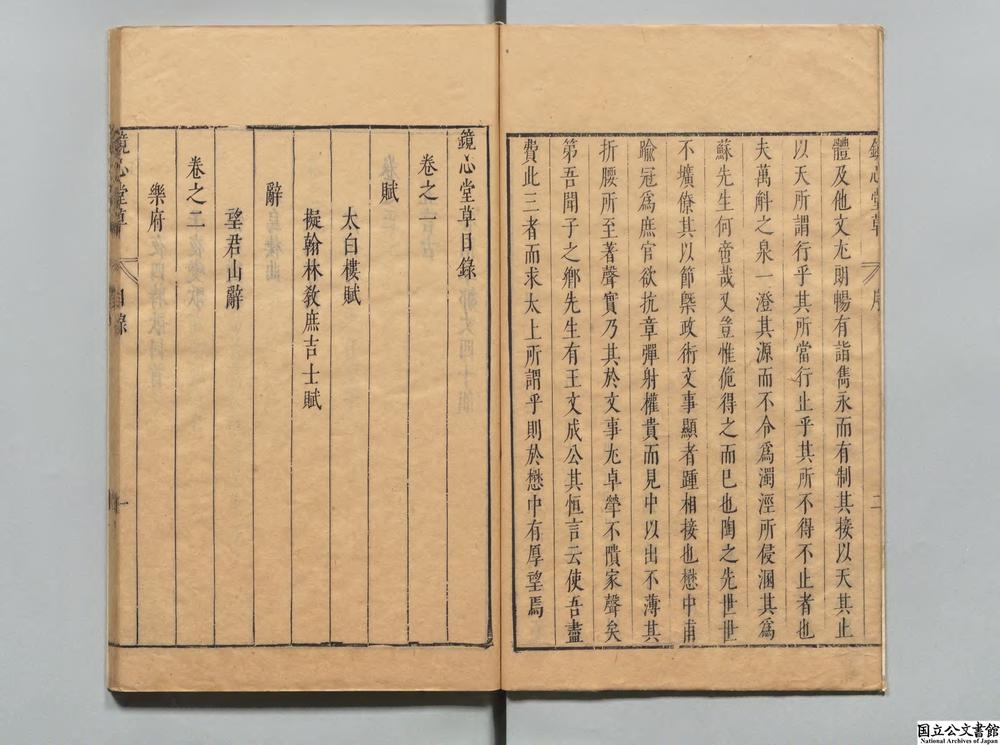 體及他文尤朗暢有詣雋永而有制其接以天其止
以天所謂行乎其所當行止乎其所不得不止者也
夫萬斛之泉一澄其源而不令爲濁涇所侵溷其爲
蘇先生何啻哉又豈惟俛得之而已也陶之先世世
不壙僚其以節槩政術文事顯者踵相接也懋中甫
踰冠爲庶官欲抗章彈射權貴而見中以出不薄其
折腰所至著聲實乃其於文事尤卓犖不隤家聲矣
第吾聞子之鄉先生有王文成公其恒言云使吾盡
費此三者而求太上所謂乎則於懋中有厚望焉
鏡心堂草 序 二
鏡心堂草目錄
卷之一
賦
太白樓賦
擬翰林敎庶吉士賦
辭
望君山辭
卷之二
樂府
鏡心堂草 目錄 一
国立公文書館
National Archives of Japan